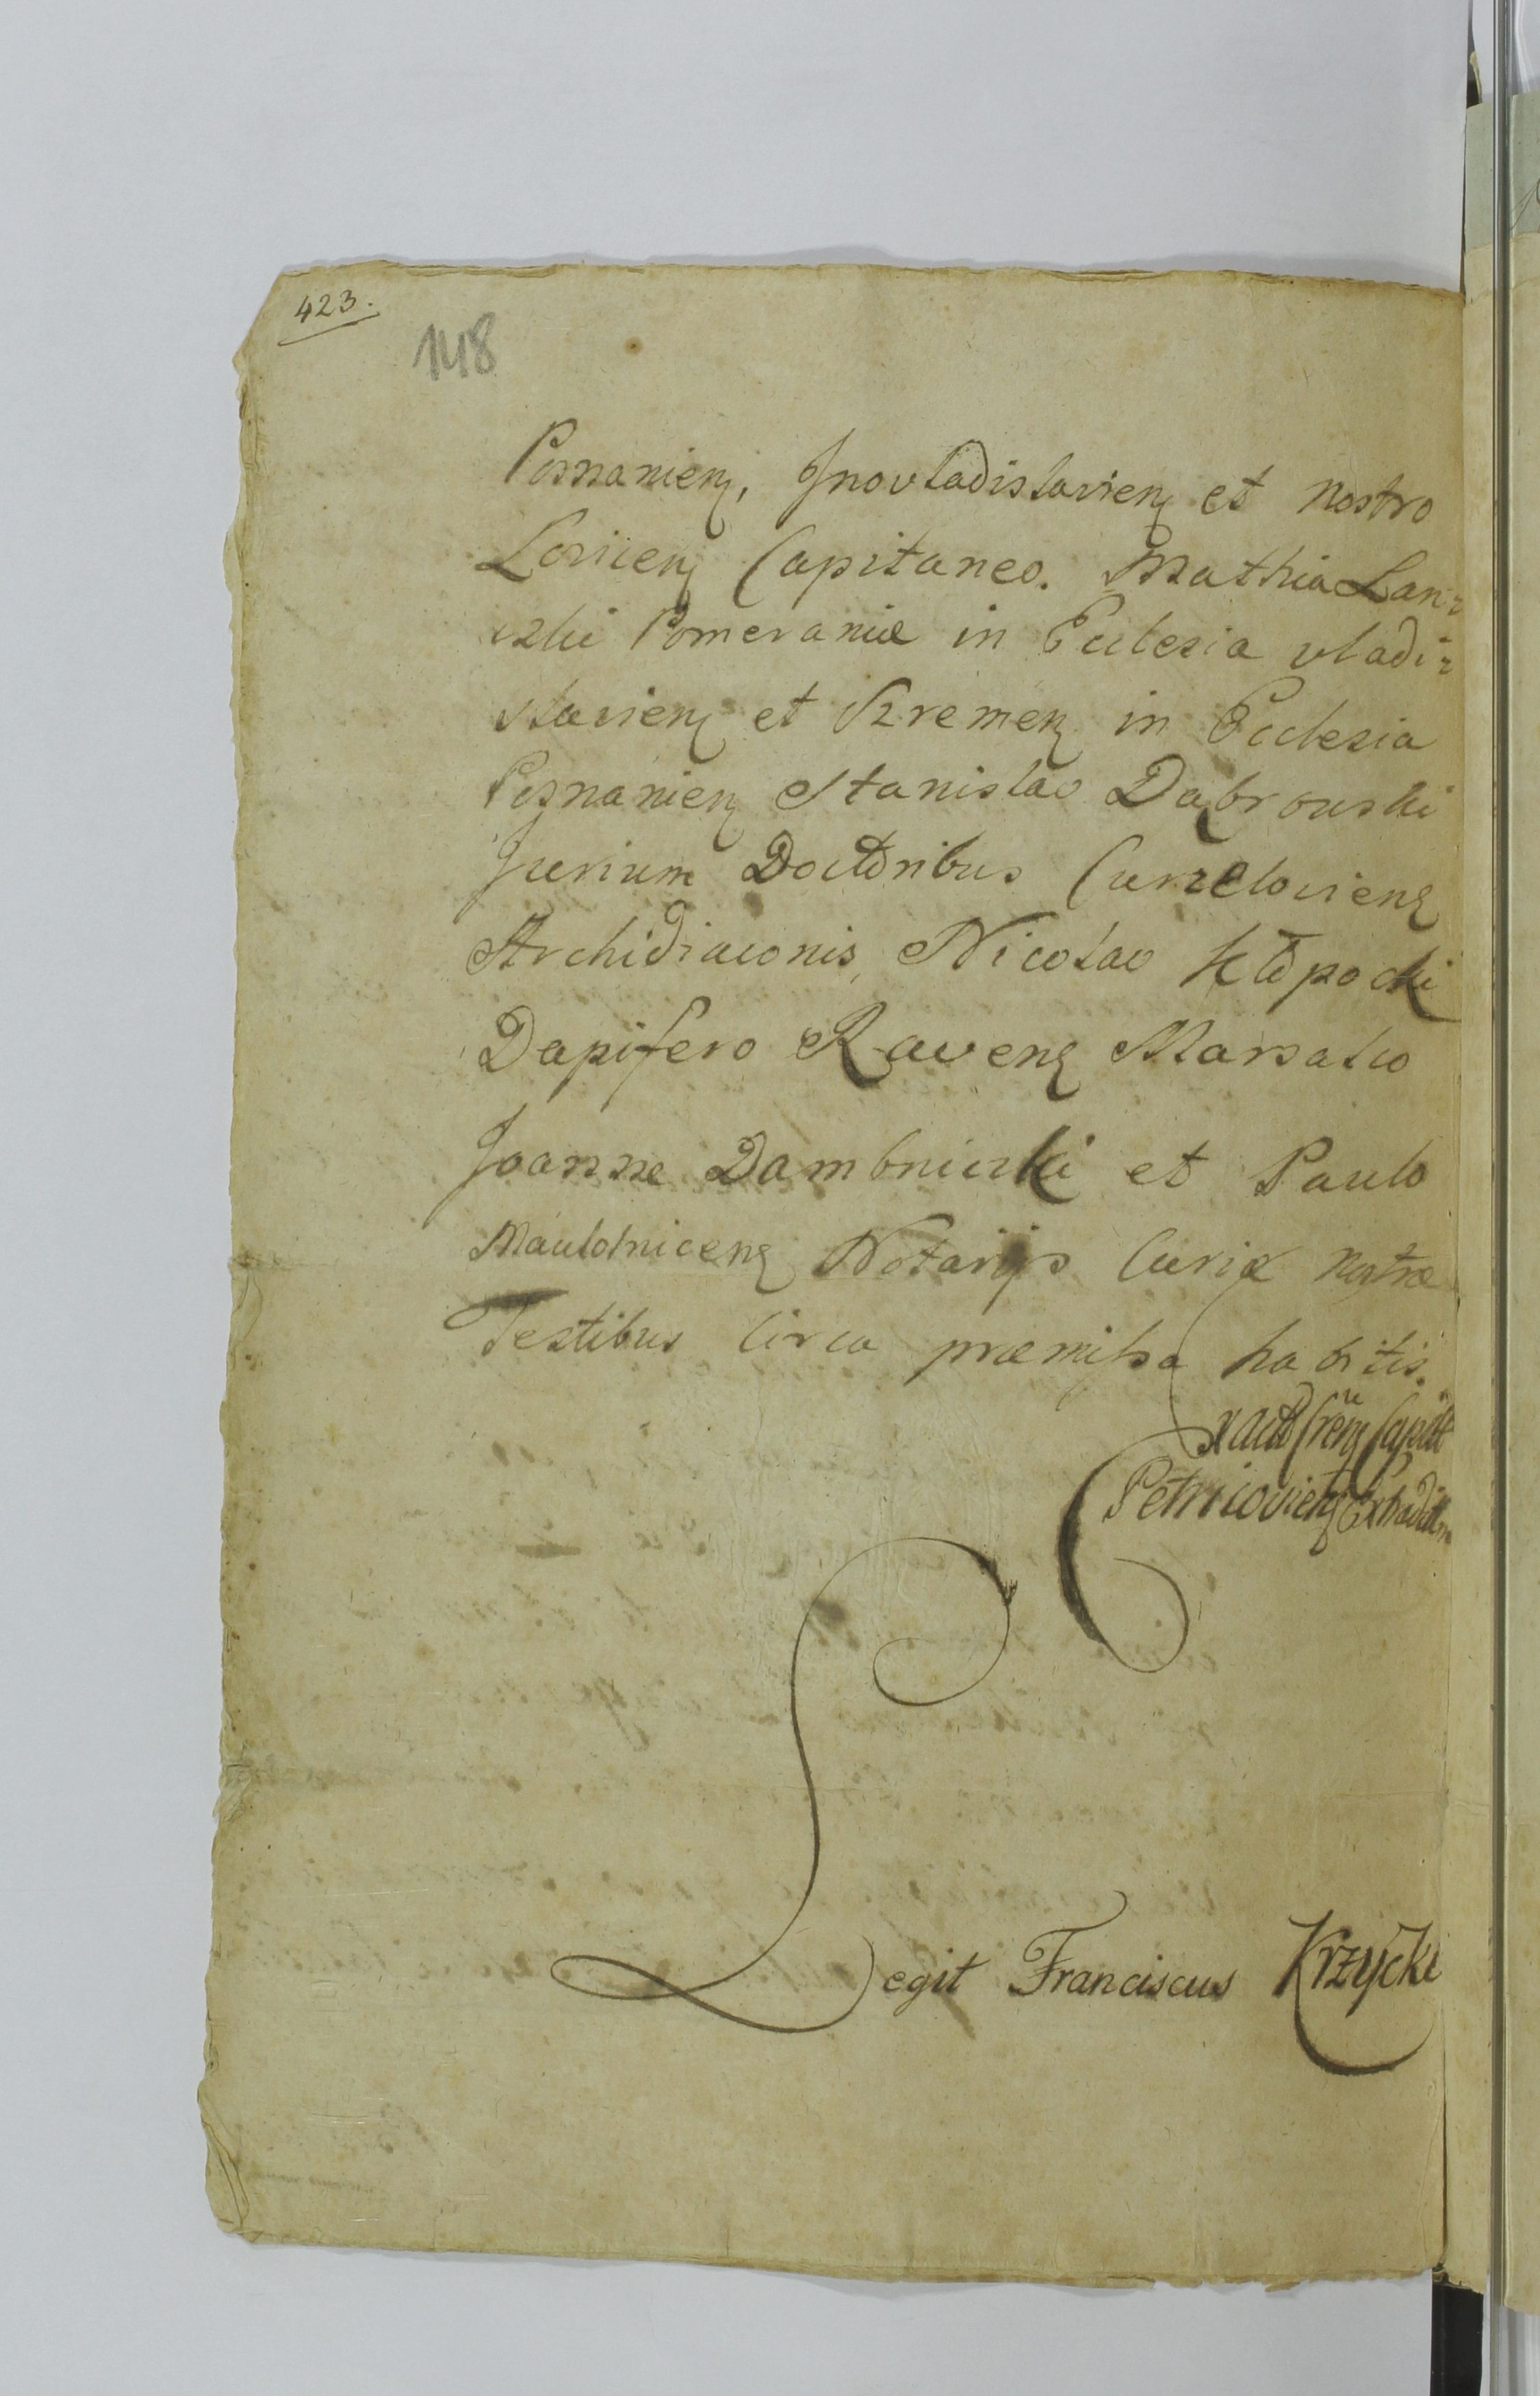 423.
148
Posnanieņ, Jnovladislavieņ et nostro
Lovicieņ Capitaneo. Mathia Lan=
czki Pomeraniæ in Ecclesia vladi=
slavieņ et Sremeņ in Ecclesia
Posnanieņ Stanislao Dąbrouski
Jurium Doctoribus Curzelovienȩ
Archidiaconis, Nicolao Kłopocki
Dapifero Ravenȩ Marsalco
Joanne Dambnicki et Paulo
Notarijs Curiæ nostræ
Testibus Circa præmissa habitis.
Ex Actis Capit
Petricovieņ Extraditm
Legit Franciscus Krzycki